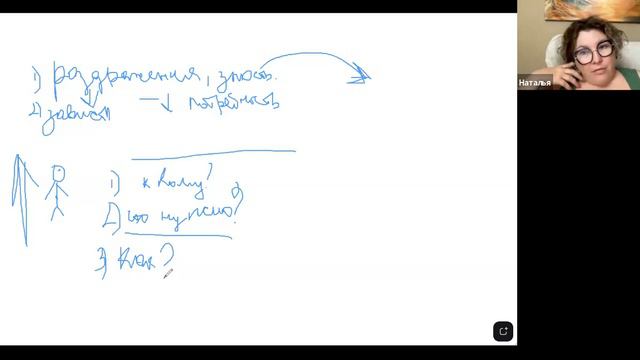 1) раздражения, злость.
2) зависть — ↓ потребность
1) к кому?
2) что нужно?
3) Как?
Наталья